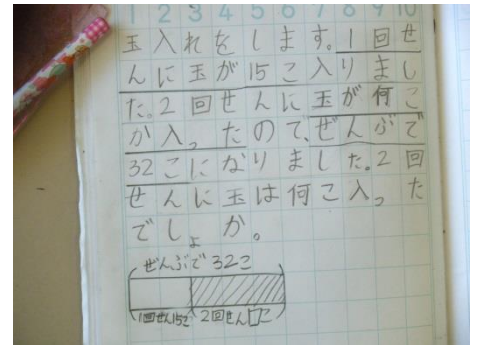 1 2 3 4 5 6 7 8 9 10
玉入れをします。1回せ
んに玉が15こ入りまし
た。2回せんに玉が何こ
か入ったので、ぜんぶで
32こになりました。2回
せんに玉は何こ入った
でしょか。
ぜんぶで32こ
1回せん15こ 2回せん□こ